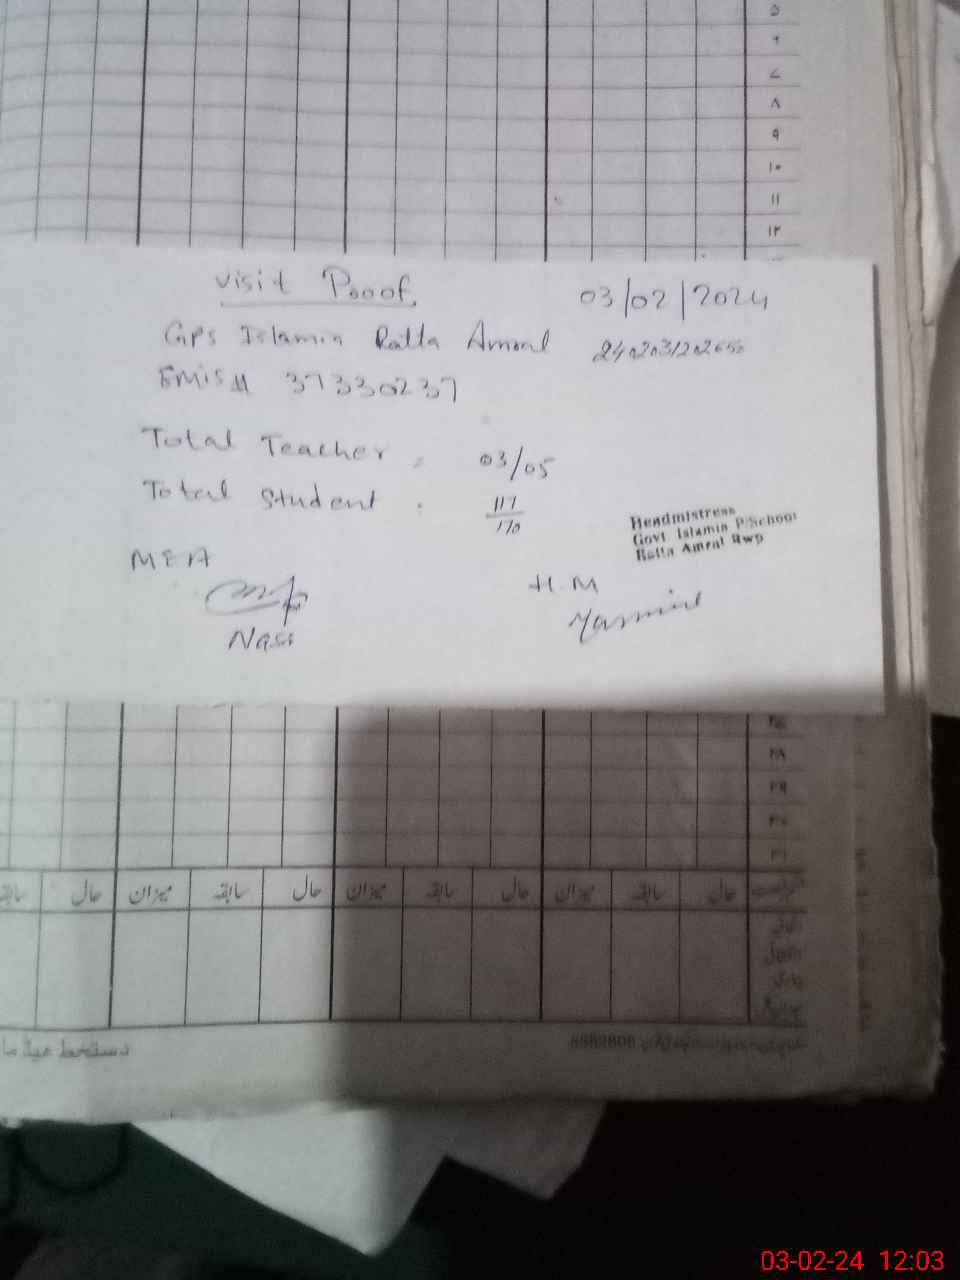 ۵
۶
۷
۸
۹
۱۰
۱۱
۱۲
Visit Proof
03/02/2024
GPS Islamia Ratta Amral
EMIS# 37330237
Total Teacher : 03/05
Total Student : 117/170
Headmistress
Govt. Islamia P/School
Ratta Amral Rwp
MEA
H.M
Nasi
Yasmin
۲۸
۲۹
۳۰
۳۱
حال سابقہ میزان حال سابقہ میزان حال سابقہ میزان حال
دستخط ہیڈ ما
03-02-24 12:03